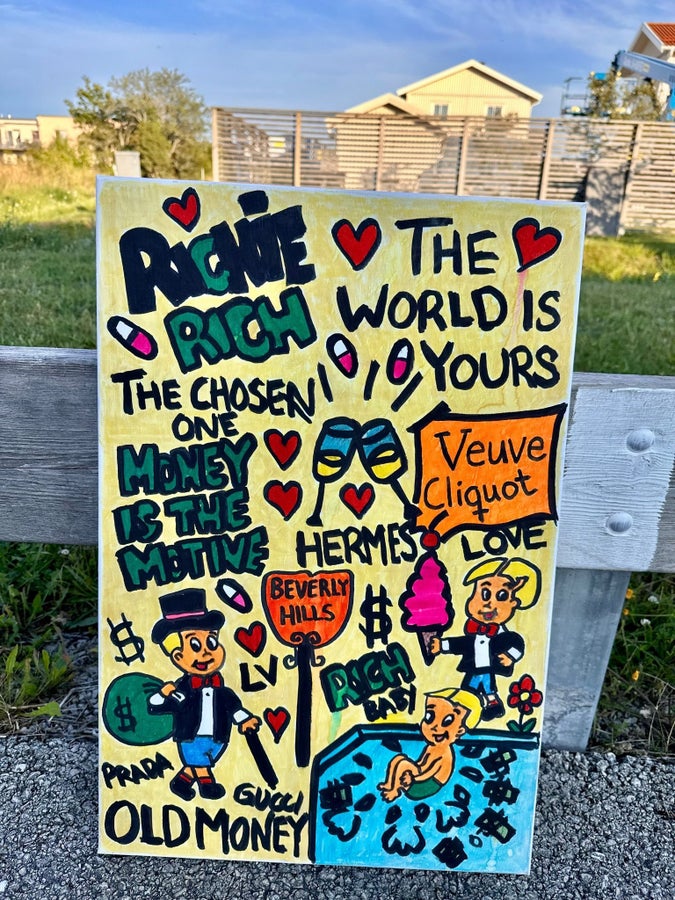 RICHIE
RICH
THE
WORLD IS
YOURS
THE CHOSEN
ONE
MONEY
IS THE
MOTIVE
Veuve
Cliquot
HERMES
LOVE
BEVERLY
HILLS
$
$
LV
RICH
BABY
$
PRADA
GUCCI
OLD MONEY